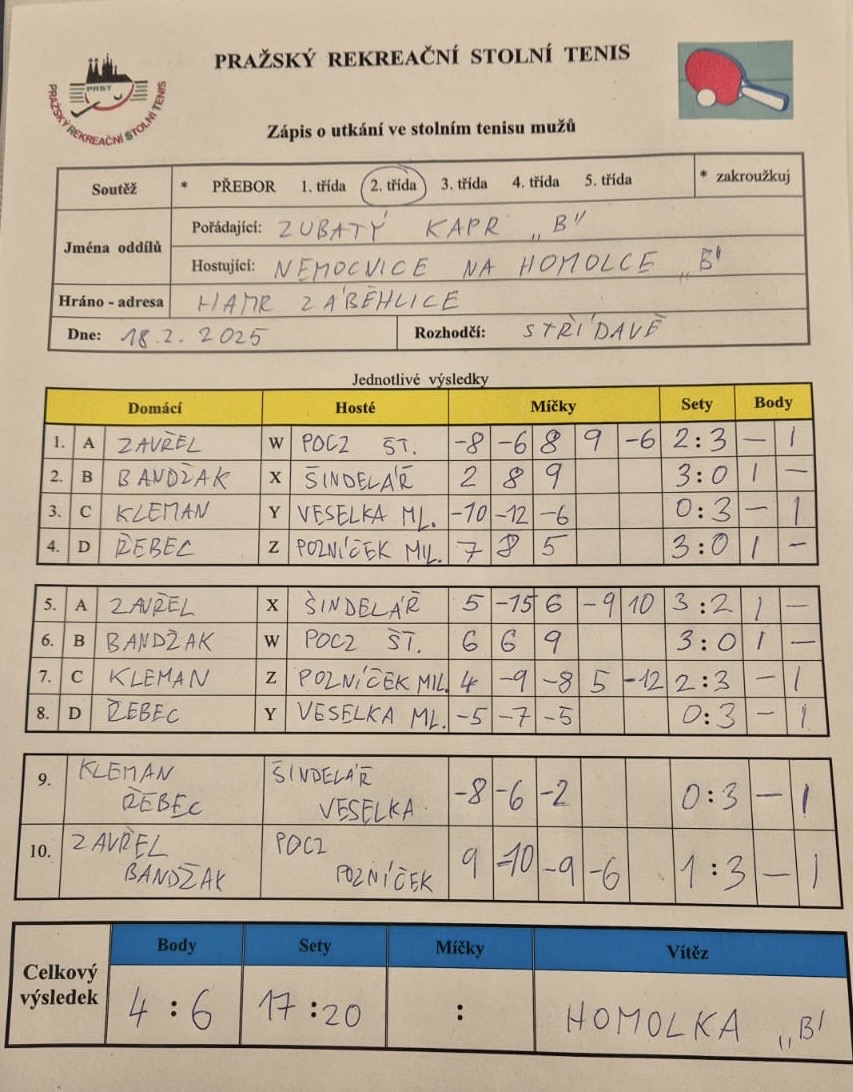 PRAŽSKÝ REKREAČNÍ STOLNÍ TENIS
PRST
PRAŽSKÝ REKREAČNÍ STOLNÍ TENIS
Zápis o utkání ve stolním tenisu mužů
Soutěž * PŘEBOR 1. třída 2. třída 3. třída 4. třída 5. třída * zakroužkuj
Jména oddílů
Pořádající: ZUBATÝ KAPR „B"
Hostující: NEMOCNICE NA HOMOLCE „B"
Hráno - adresa HAMR ZÁBĚHLICE
Dne: 18.2.2025 Rozhodčí: STŘÍDAVĚ
Jednotlivé výsledky
Domácí Hosté Míčky Sety Body
1. A ZAVŘEL W POCZ ST. -8 -6 8 9 -6 2:3 — 1
2. B BANDŽAK X ŠINDELÁŘ 2 8 9 3:0 1 —
3. C KLEMAN Y VESELKA ML. -10 -12 -6 0:3 — 1
4. D ŘEBEC Z POZNÍČEK MIL. 7 8 5 3:0 1 —
5. A ZAVŘEL X ŠINDELÁŘ 5 -15 6 -9 10 3:2 1 —
6. B BANDŽAK W POCZ ST. 6 6 9 3:0 1 —
7. C KLEMAN Z POZNÍČEK MIL. 4 -9 -8 5 -12 2:3 — 1
8. D ŘEBEC Y VESELKA ML. -5 -7 -5 0:3 — 1
9. KLEMAN ŠINDELÁŘ -8 -6 -2 0:3 — 1
ŘEBEC VESELKA
10. ZAVŘEL POCZ 9 -10 -9 -6 1:3 — 1
BANDŽAK POZNÍČEK
Celkový výsledek
Body Sety Míčky Vítěz
4:6 17:20 : HOMOLKA „B"